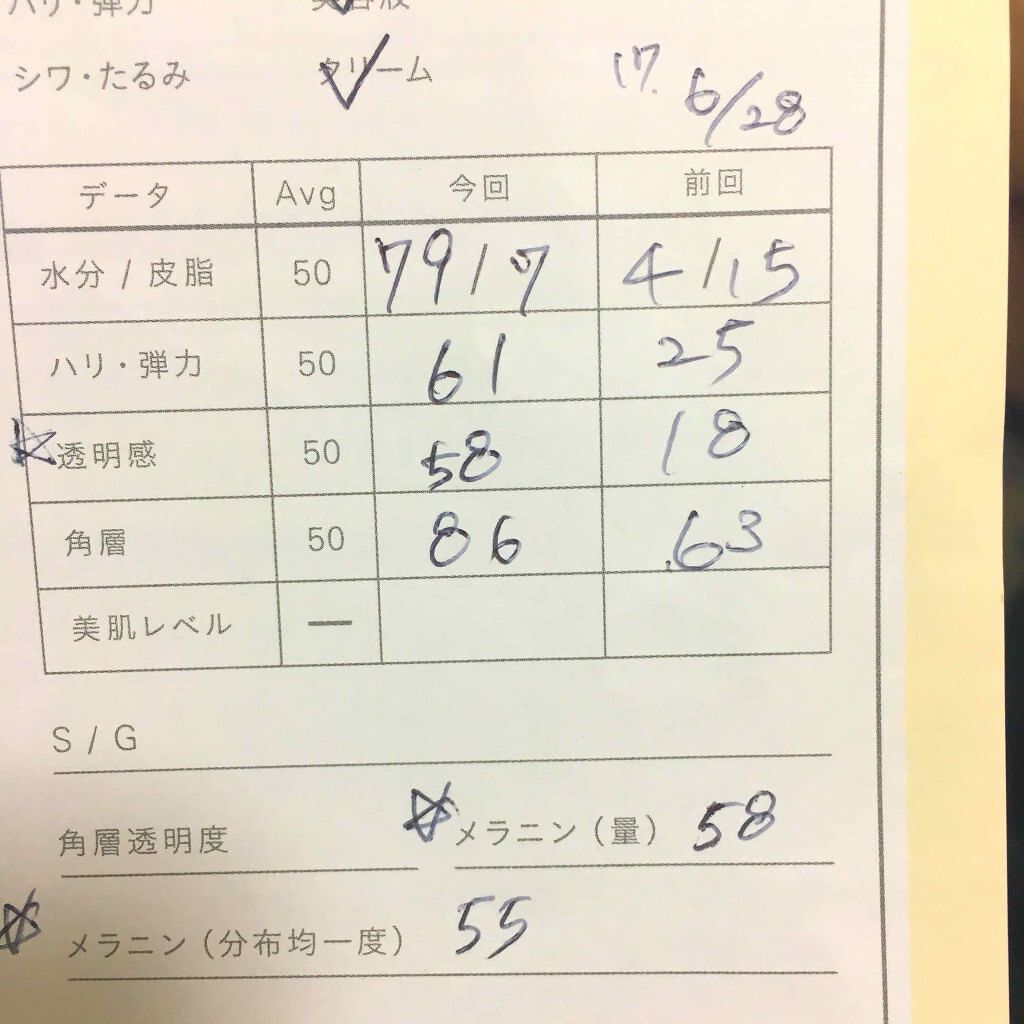 ハリ・弾力 美容液
シワ・たるみ クリーム 17. 6/28
データ Avg 今回 前回
水分 / 皮脂 50 79/7 4/15
ハリ・弾力 50 61 25
☆透明感 50 58 18
角層 50 86 63
美肌レベル ー
S / G
角層透明度 ☆メラニン（量） 58
☆メラニン（分布均一度） 55